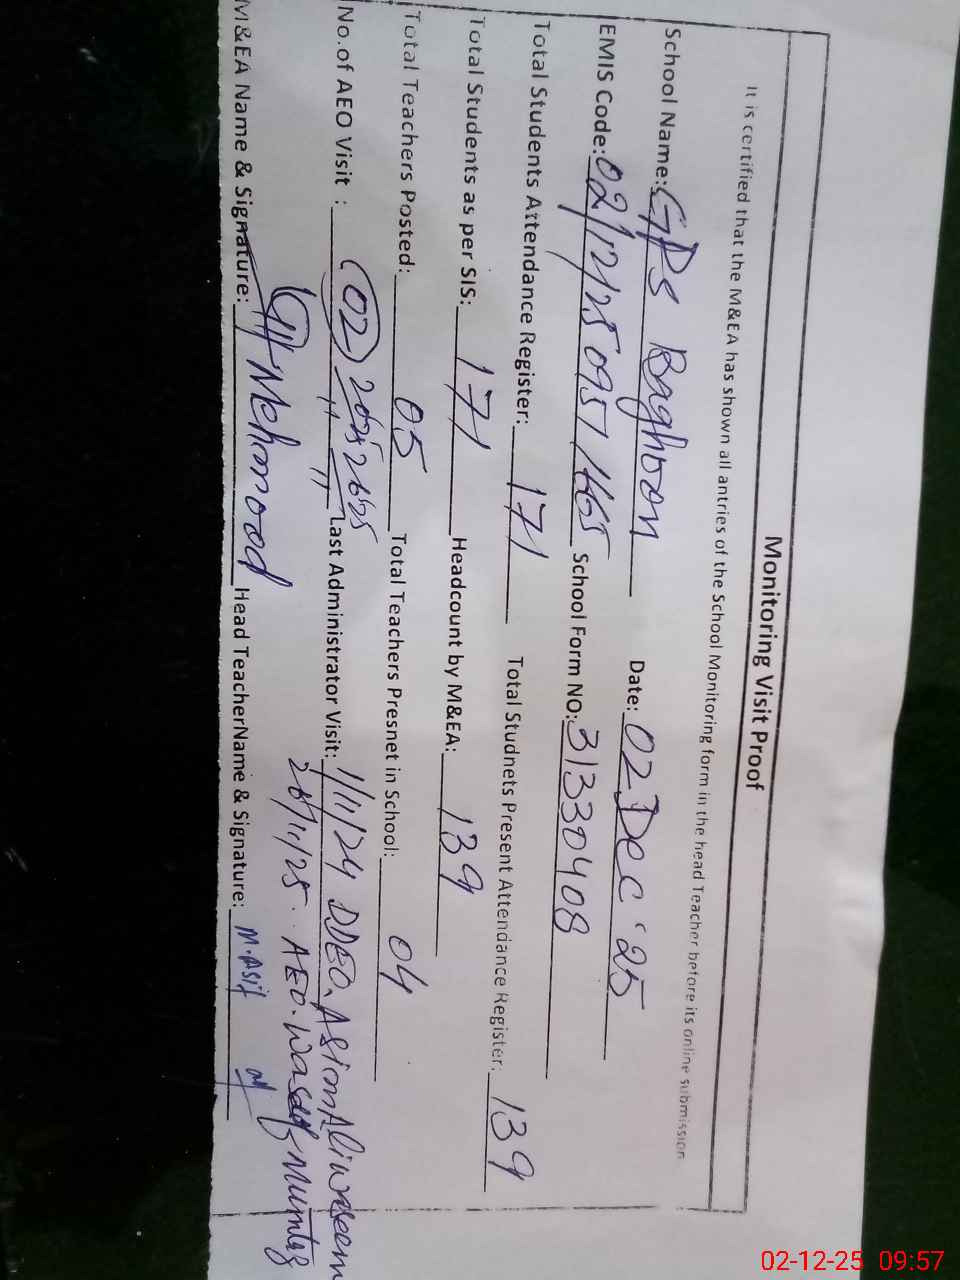 Monitoring Visit Proof
It is certified that the M&EA has shown all antries of the School Monitoring form in the head Teacher before its online submission
School Name: GPS Baghoon Date: 02 Dec '25
EMIS Code: School Form NO: 31330408
Total Students Attendance Register: 171 Total Studnets Present Attendance Register: 139
Total Students as per SIS: 171 Headcount by M&EA: 139
Total Teachers Posted: 05 Total Teachers Presnet in School: 04
No.of AEO Visit : (02) Last Administrator Visit: 1/11/24 DDEO, Asim Ali waseem
26/11/25. AEO. Mumtaz
M&EA Name & Signature: Mehmood Head TeacherName & Signature: M.Asif
02-12-25 09:57